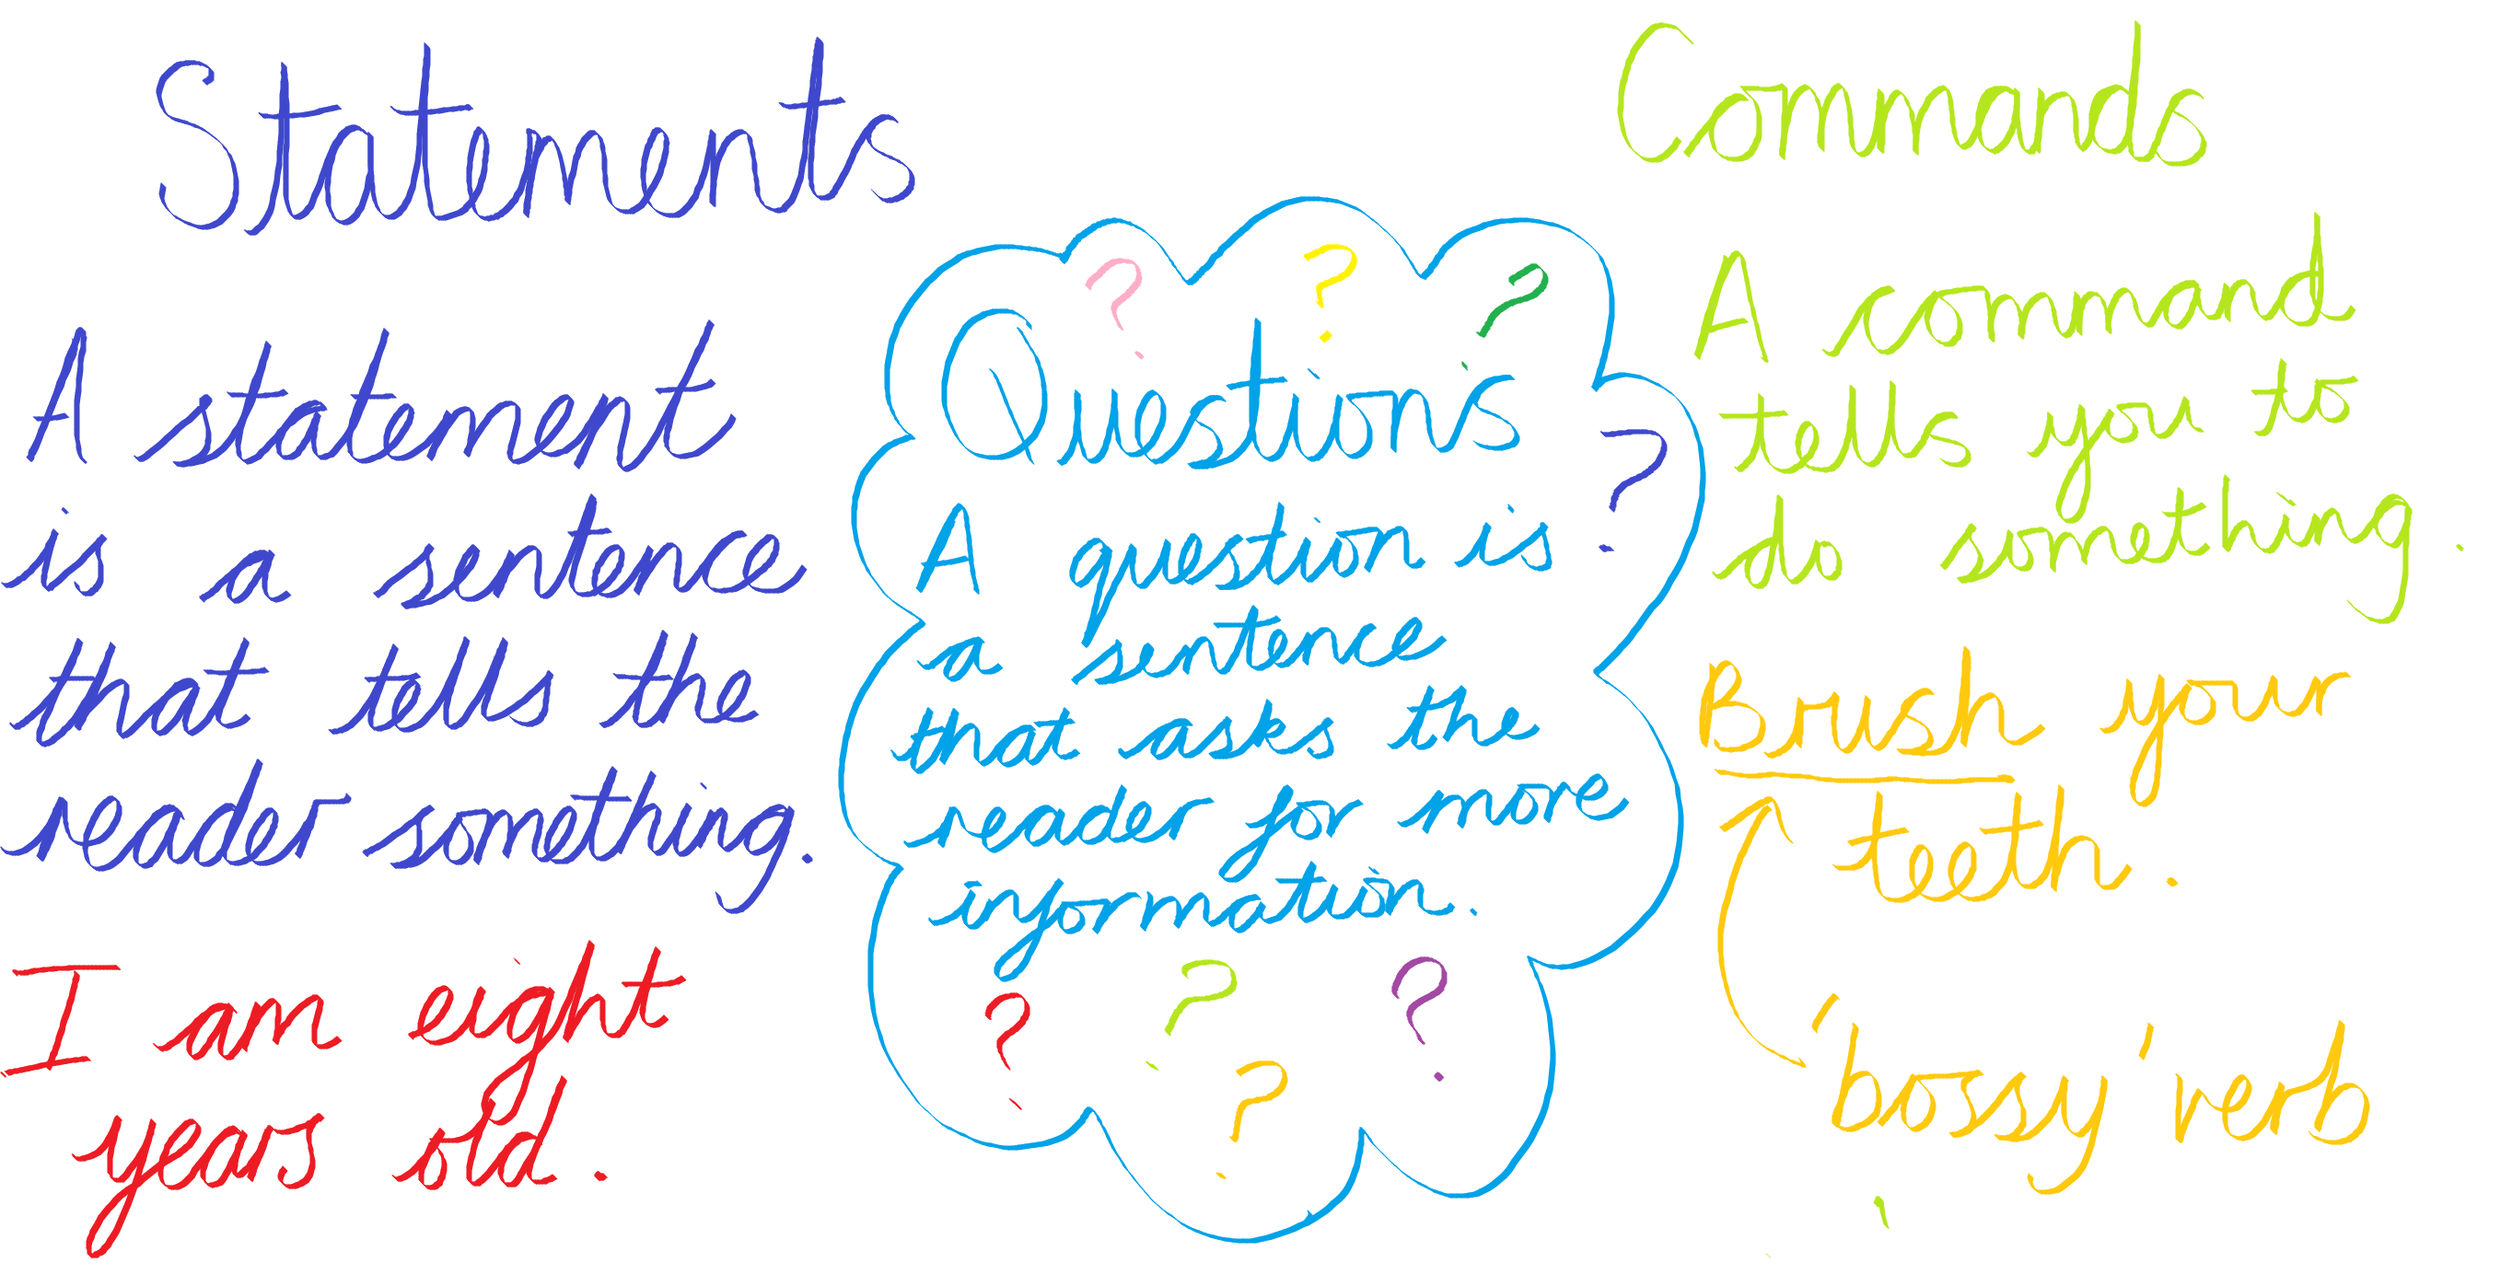 Statements
A statement
is a sentence
that tells the
reader something.
I am eight
years old.
? ? ?
Questions
?
A question is
a sentence
that asks the
reader for more
information.
? ? ?
?
Commands
A command
tells you to
do something.
Brush your
teeth.
'bossy' verb